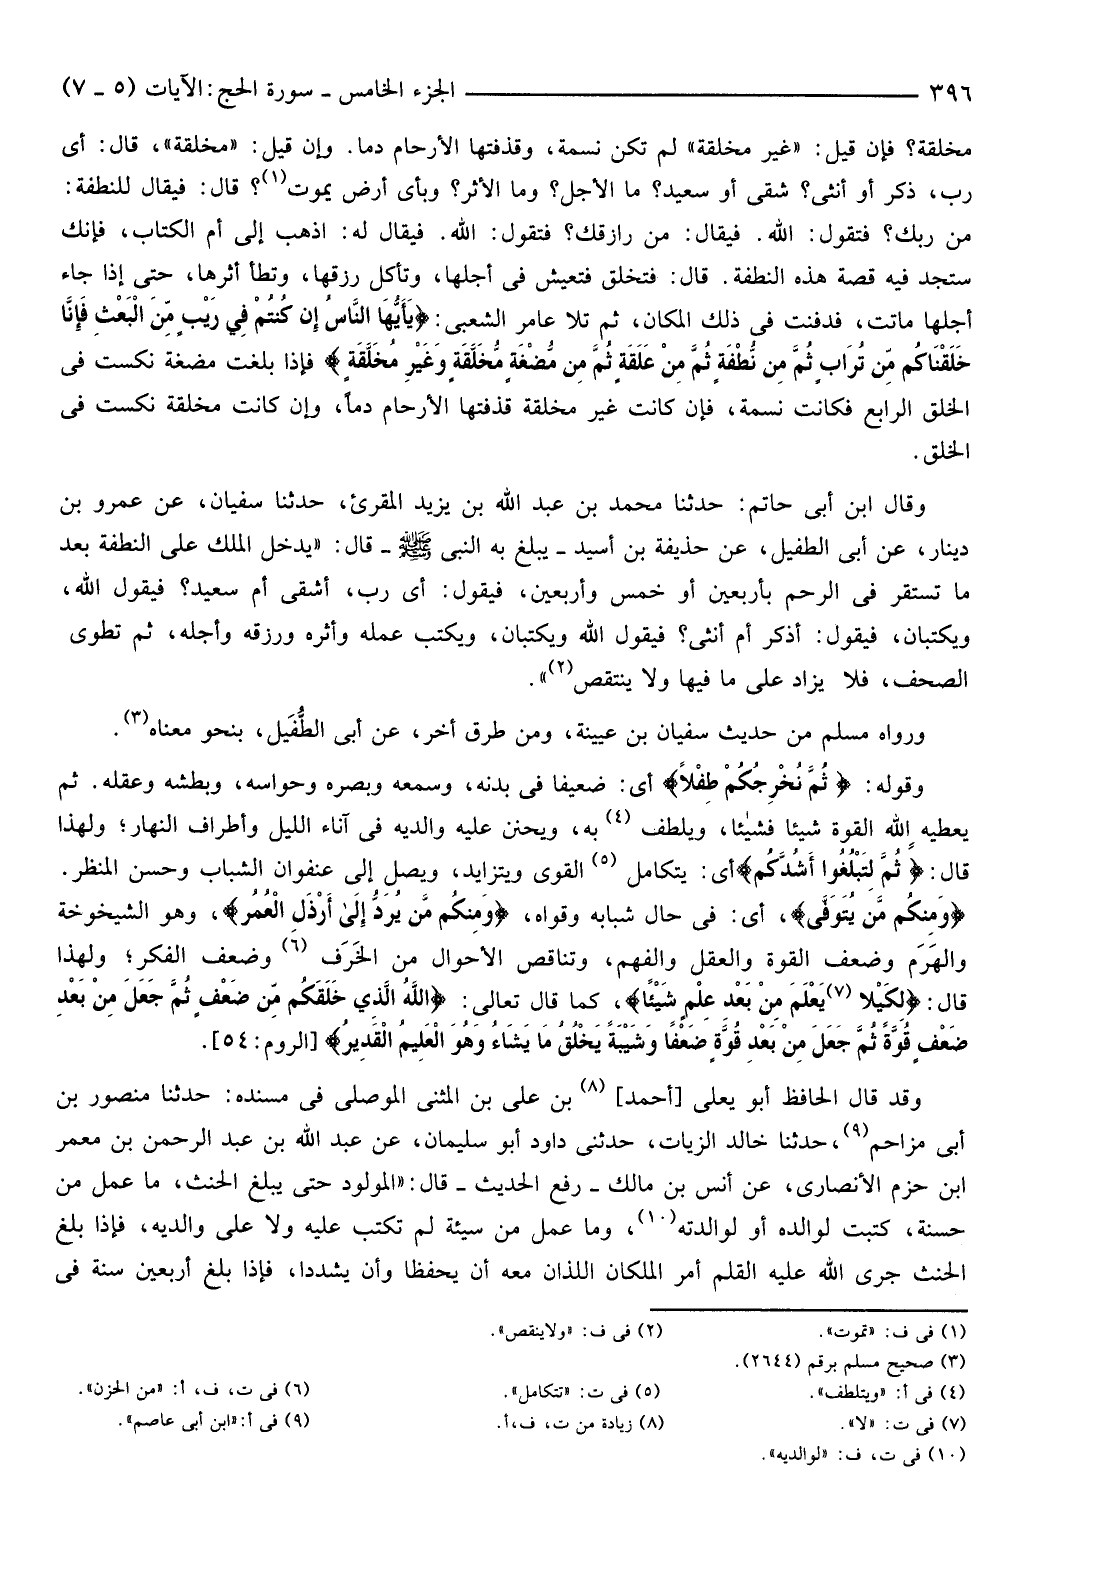 ٣٩٦ ــــــــــــــــــــ الجزء الخامس ـ سورة الحج : الآيات (٥ ـ ٧)
مخلقة؟ فإن قيل: «غير مخلقة» لم تكن نسمة، وقذفتها الأرحام دما. وإن قيل: «مخلقة»، قال: أى
رب، ذكر أو أنثى؟ شقى أو سعيد؟ ما الأجل؟ وما الأثر؟ وبأى أرض يموت(١)؟ قال: فيقال للنطفة:
من ربك؟ فتقول: الله. فيقال: من رازقك؟ فتقول: الله. فيقال له: اذهب إلى أم الكتاب، فإنك
ستجد فيه قصة هذه النطفة. قال: فتخلق فتعيش فى أجلها، وتأكل رزقها، وتطأ أثرها، حتى إذا جاء
أجلها ماتت، فدفنت فى ذلك المكان، ثم تلا عامر الشعبى: ﴿يَأَيُّهَا النَّاسُ إِن كُنتُمْ فِي رَيْبٍ مِّنَ الْبَعْثِ فَإِنَّا
خَلَقْنَاكُم مِّن تُرَابٍ ثُمَّ مِن نُّطْفَةٍ ثُمَّ مِنْ عَلَقَةٍ ثُمَّ مِن مُّضْغَةٍ مُّخَلَّقَةٍ وَغَيْرِ مُخَلَّقَةٍ ﴾ فإذا بلغت مضغة نكست فى
الخلق الرابع فكانت نسمة، فإن كانت غير مخلقة قذفتها الأرحام دماً، وإن كانت مخلقة نكست فى
الخلق.
وقال ابن أبى حاتم: حدثنا محمد بن عبد الله بن يزيد المقرئ، حدثنا سفيان، عن عمرو بن
دينار، عن أبى الطفيل، عن حذيفة بن أسيد ـ يبلغ به النبى ﷺ ـ قال: «يدخل الملك على النطفة بعد
ما تستقر فى الرحم بأربعين أو خمس وأربعين، فيقول: أى رب، أشقى أم سعيد؟ فيقول الله،
ويكتبان، فيقول: أذكر أم أنثى؟ فيقول الله ويكتبان، ويكتب عمله وأثره ورزقه وأجله، ثم تطوى
الصحف، فلا يزاد على ما فيها ولا ينتقص(٢)».
ورواه مسلم من حديث سفيان بن عيينة، ومن طرق أخر، عن أبى الطُّفَيل، بنحو معناه(٣).
وقوله: ﴿ ثُمَّ نُخْرِجُكُمْ طِفْلاً﴾ أى: ضعيفا فى بدنه، وسمعه وبصره وحواسه، وبطشه وعقله. ثم
يعطيه الله القوة شيئا فشيئا، ويلطف (٤) به، ويحنن عليه والديه فى آناء الليل وأطراف النهار؛ ولهذا
قال: ﴿ ثُمَّ لِتَبْلُغُوا أَشُدَّكُم﴾أى: يتكامل (٥) القوى ويتزايد، ويصل إلى عنفوان الشباب وحسن المنظر.
﴿وَمِنكُم مَّن يُتَوَفَّى﴾، أى: فى حال شبابه وقواه، ﴿وَمِنكُم مَّن يُرَدُّ إِلَىٰ أَرْذَلِ الْعُمُر﴾، وهو الشيخوخة
والهَرَم وضعف القوة والعقل والفهم، وتناقص الأحوال من الخَرَف (٦) وضعف الفكر؛ ولهذا
قال: ﴿لِكَيْلا (٧)يَعْلَمَ مِنْ بَعْدِ عِلْمٍ شَيْئًا﴾، كما قال تعالى: ﴿اللَّهُ الَّذِي خَلَقَكُم مِّن ضَعْفٍ ثُمَّ جَعَلَ مِنْ بَعْدِ
ضَعْفٍ قُوَّةً ثُمَّ جَعَلَ مِنْ بَعْدِ قُوَّةٍ ضَعْفًا وَشَيْبَةً يَخْلُقُ مَا يَشَاءُ وَهُوَ الْعَلِيمُ الْقَدِيرُ﴾ [الروم: ٥٤].
وقد قال الحافظ أبو يعلى [أحمد] (٨) بن على بن المثنى الموصلى فى مسنده: حدثنا منصور بن
أبى مزاحم(٩)، حدثنا خالد الزيات، حدثنى داود أبو سليمان، عن عبد الله بن عبد الرحمن بن معمر
ابن حزم الأنصارى، عن أنس بن مالك ـ رفع الحديث ـ قال: «المولود حتى يبلغ الحنث، ما عمل من
حسنة، كتبت لوالده أو لوالدته(١٠)، وما عمل من سيئة لم تكتب عليه ولا على والديه، فإذا بلغ
الحنث جرى الله عليه القلم أمر الملكان اللذان معه أن يحفظا وأن يشددا، فإذا بلغ أربعين سنة فى
(١) فى ف: «تموت». (٢) فى ف: «ولاينقص».
(٣) صحيح مسلم برقم (٢٦٤٤).
(٤) فى أ: «ويتلطف». (٥) فى ت: «تتكامل». (٦) فى ت، ف، أ: «من الحزن».
(٧) فى ت: «لا». (٨) زيادة من ت، ف،أ. (٩) فى أ:«ابن أبى عاصم».
(١٠) فى ت، ف: «لوالديه».